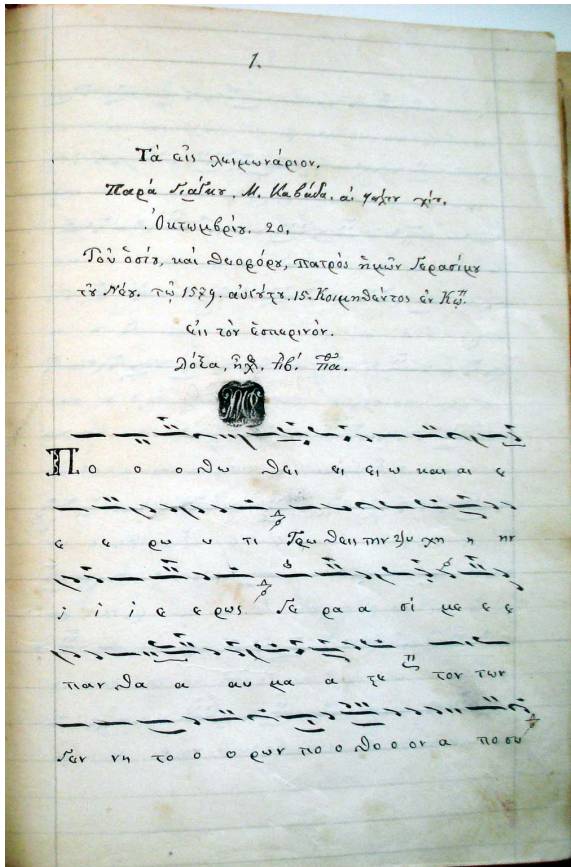 1.
Τὰ εἰς λειμωνάριον.
Παρὰ Γιάγκου. Μ. Καβάδα.
Ὀκτωμβρίου. 20.
Τοῦ ὁσίου, καὶ θεοφόρου, πατρὸς ἡμῶν Γερασίμου
τοῦ Νέου. τῷ 1579. αὐγούστου. 15. Κοιμηθέντος ἐν
εἰς τὸν ἑσπερινόν.
Δόξα, ἦχ. πβ. Πα.
Πο ο ο θω θει ει ει ω και αι ε
ε ε ρω υ τι Τρω θεις την ψυ χη η ην
ι ι ι ε ε ρως Γε ρα α σι με ε ε
παν θα α αυ μα α α τε τον των
Γεν νη το ο ο ρων πο ο θο ο ον α πο σω